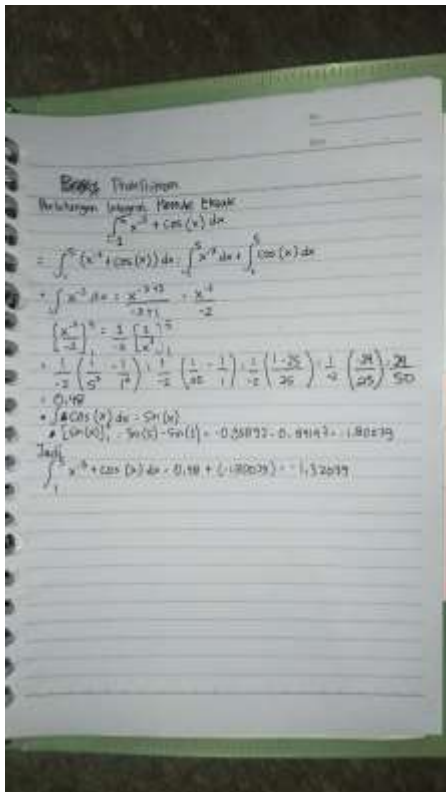 Praktikum
Perhitungan Integral Metode Eksak
∫_1^5 x^-3 + cos(x) dx
= ∫_1^5 (x^-3 + cos(x)) dx = ∫_1^5 x^-3 dx + ∫_1^5 cos(x) dx
• ∫ x^-3 dx = x^-3+1 / -3+1 = x^-2 / -2
[x^-2 / -2]^5 = 1/-2 [1/x^2]_1^5
= 1/-2 (1/5^2 - 1/1^2) = 1/-2 (1/25 - 1/1) = 1/-2 (1-25 / 25) = 1/-2 (-24/25) = 24/50
= 0.48
• ∫ cos(x) dx = sin(x)
• [sin(x)]_1^5 = sin(5) - sin(1) = -0.95892 - 0.84147 = -1.80039
Jadi,
∫_1^5 x^-3 + cos(x) dx = 0.48 + (-1.80039) = -1.32039